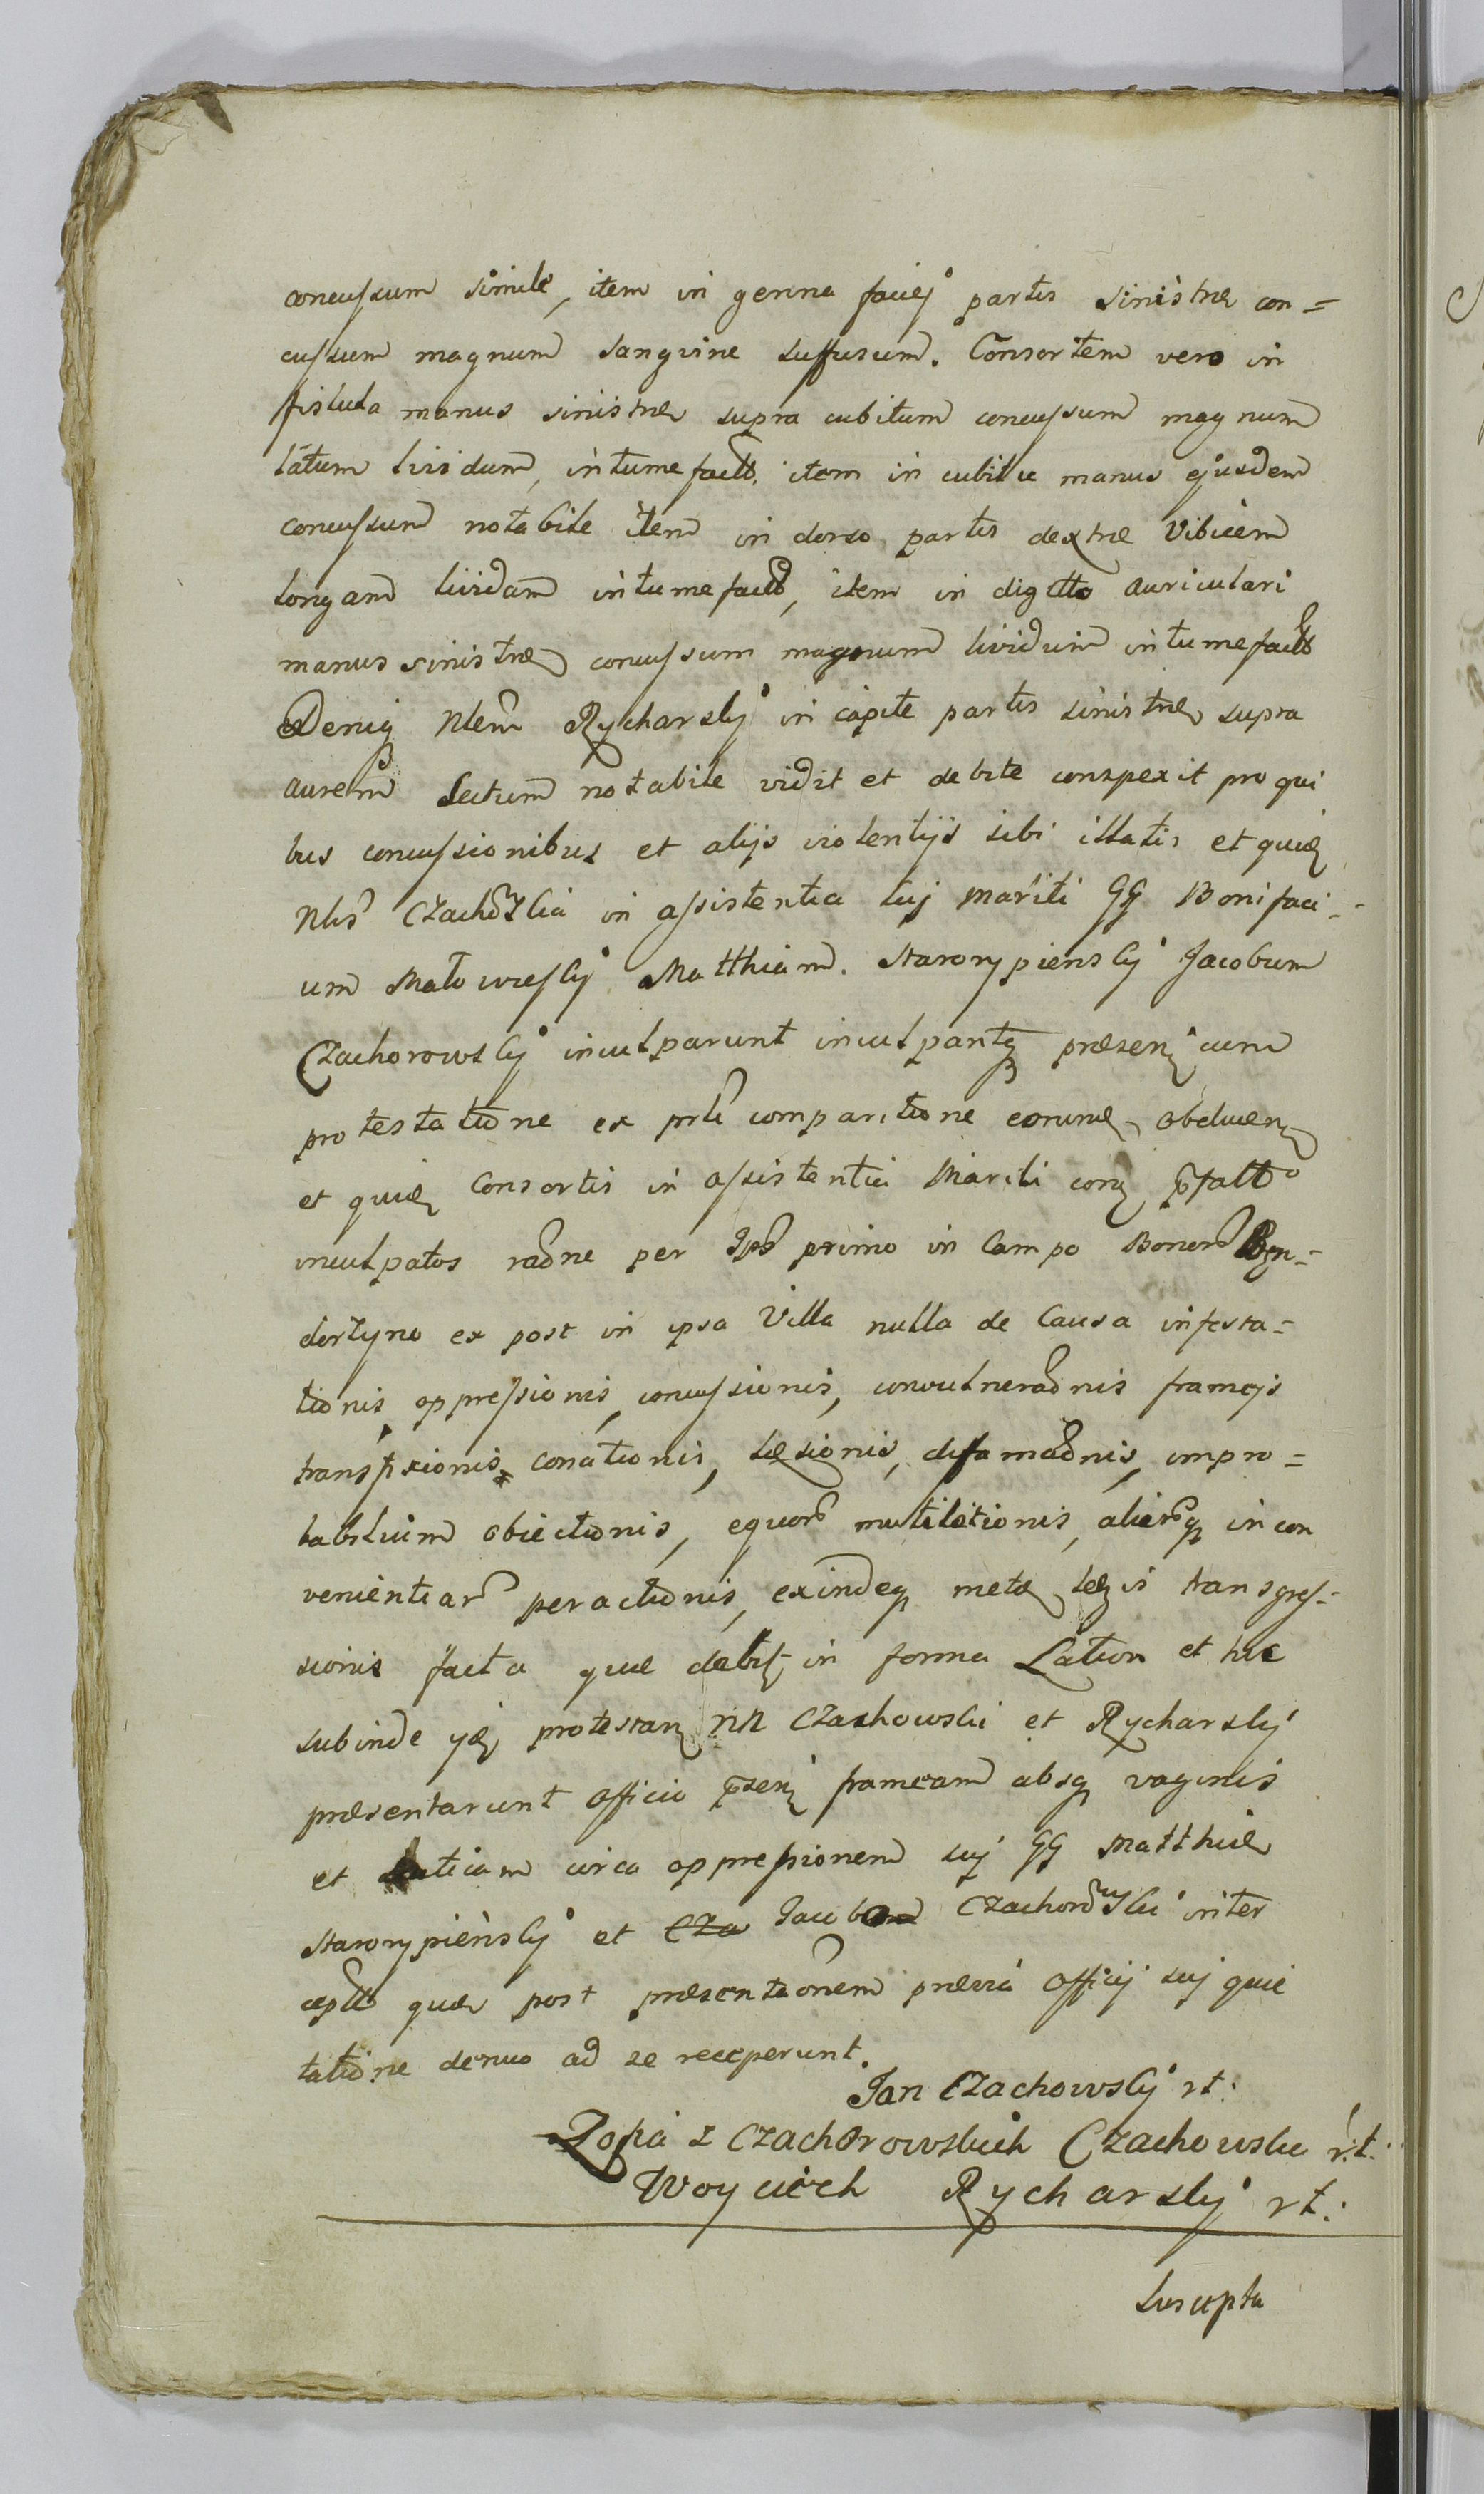 concussum simile, item in genna faciej partis sinistræ con=
cussum magnum sanguine suffusum. Consortem vero in
fistula manus sinistræ supra cubitum concussum magnum
latum lividum, intumefactt. item in cubitu manus ejusdem
concussum notabile item in dorso partis dextræ Vibicem
longam lividam intumefactt, item in digitto auriculari
manus sinistræ concussum magnum lividum intumefactt
Deniq Nlem Rycharsky in capite partis sinistræ supra
aurem Sectum notabile vidit et debite conspexit pro qui
bus concussionibus et alijs violentijs sibi illatis et quid
Nlis Czachowska in assistentia suj mariti GG Bonifaci-
um Małowiesky Matthiam Starorypiensky Jacobum
Czachorowsky inculparunt inculpantq præsenj cum
protestatione ex prti comparitione eorund
et quid Consortis in assistentia Mariti
inculpatos raone per Ipos primo in Campo Bonor
dortyno ex post in ipsa Villa nulla de Causa infesta=
tionis oppressionis, concussionis, convulneraonis framejs
transfixionis conationis, læsionis, difamaonis, impro=
babilium obiectionis, equor mutilationis, aliarq incon
venientiar peractionis, exindeq metæ legis transgres-
sionis facta quæ debit in forma Lation et hic
subinde protestan NN Czachowski et Rycharsky
præsentarunt Officio pzenj frameam absq vaginis
et circa oppressionem suj GG Matthiæ
Starorypiensky et Cza Jacob Czachorowski inter
ceptt quæ post præsentaonem prævia Officij suj quie
tatione denuo ad se receperunt.
Jan Czachowsky rt:
Zofia z Czachorowskich Czachowska r.t.
Woyciech Rycharsky rt:
Suscepta